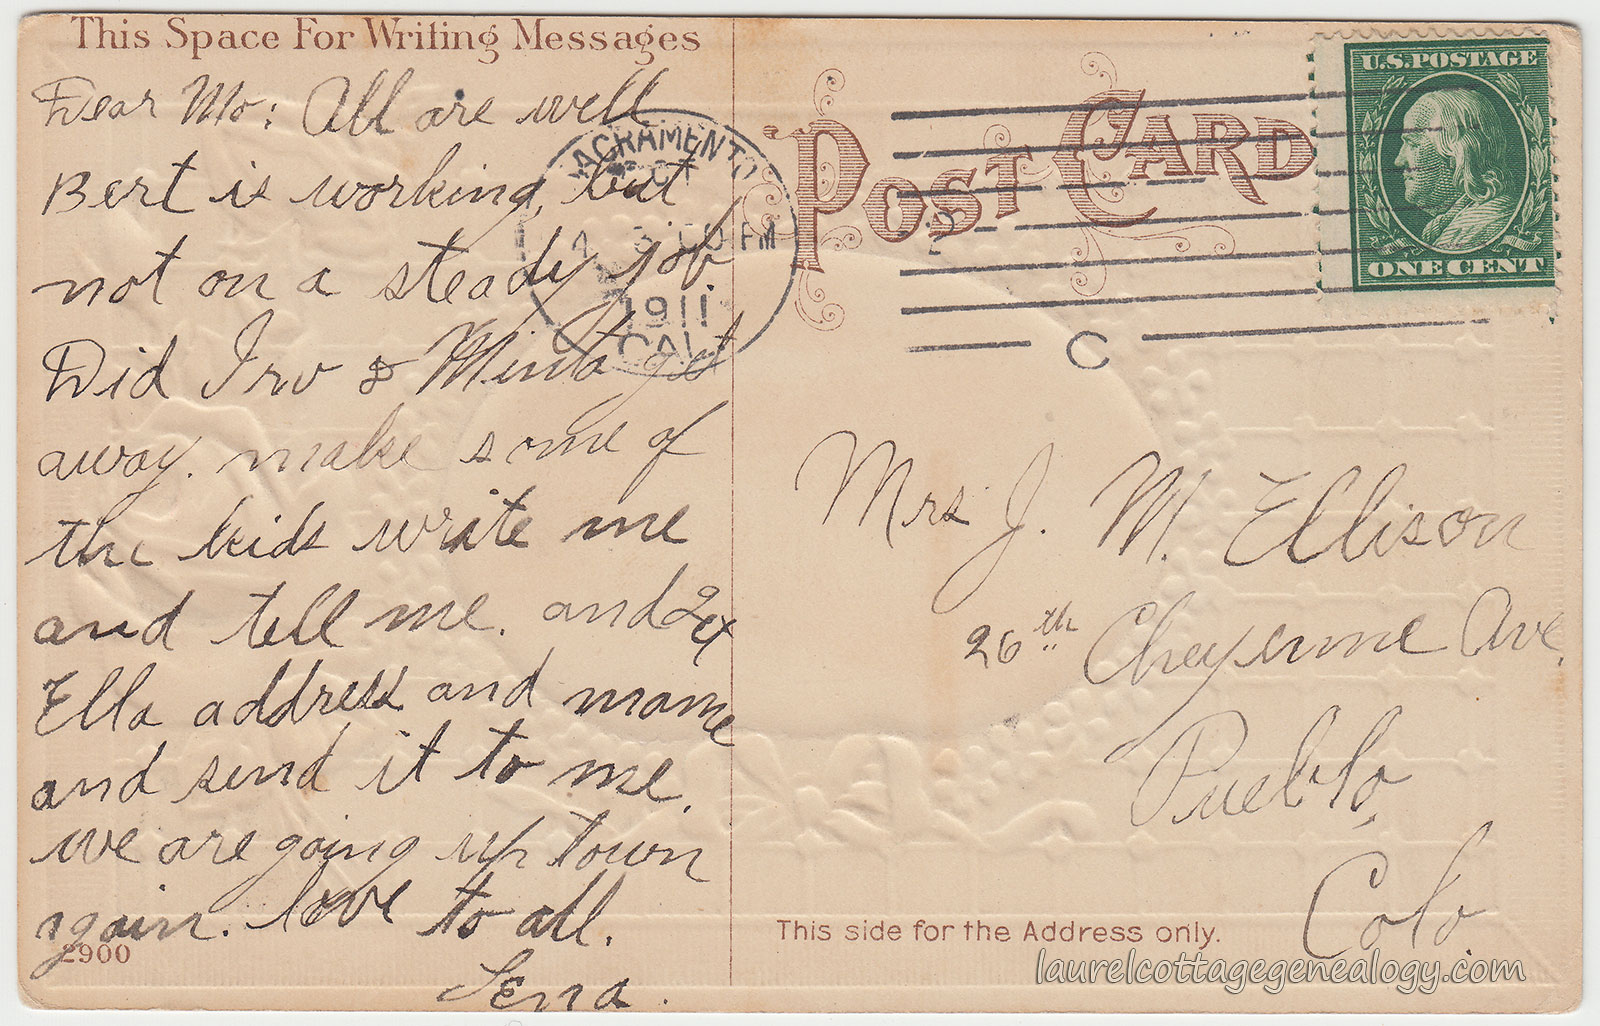 This Space For Writing Messages
Dear Mo: All are well
Bert is working, but
not on a steady job
Did Irv & Minta get
away. make some of
the kids write me
and tell me. and get
Ella address and mame
and send it to me.
we are going up town
again. love to all.
Lena.
2900
SACRAMENTO
OCT
4
3 00 PM
1911
CAL.
POST CARD
2
C
U.S. POSTAGE
ONE CENT
Mrs J. M. Ellison
26th Cheyenne Ave.
Pueblo,
Colo.
This side for the Address only.
laurelcottagegenealogy.com